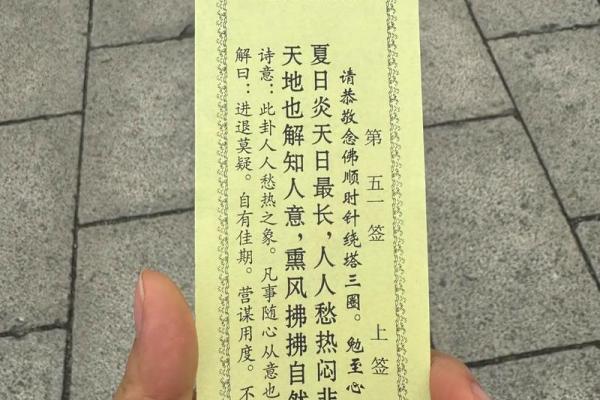 第五一签 上签
请恭敬念佛顺时针绕塔三圈。勉至心
夏日炎天日最长，人人愁热闷非
天地也解知人意，熏风拂拂自然
诗意：此卦人人愁热之象。凡事随心从意也
解曰：进退莫疑。自有佳期。营谋用度。不